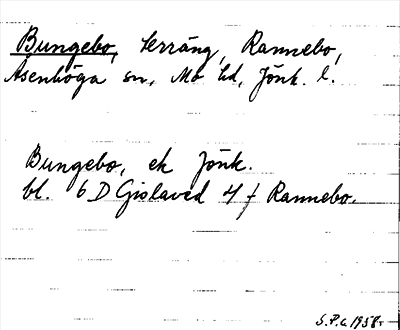 Bungebo, terräng, Rannebo,
Åsenhöga sn, Mo hd, Jönk. l.
Bungebo, ek Jönk.
bl. 6 D Gislaved 4 f Rannebo.
S.P.C. 1958